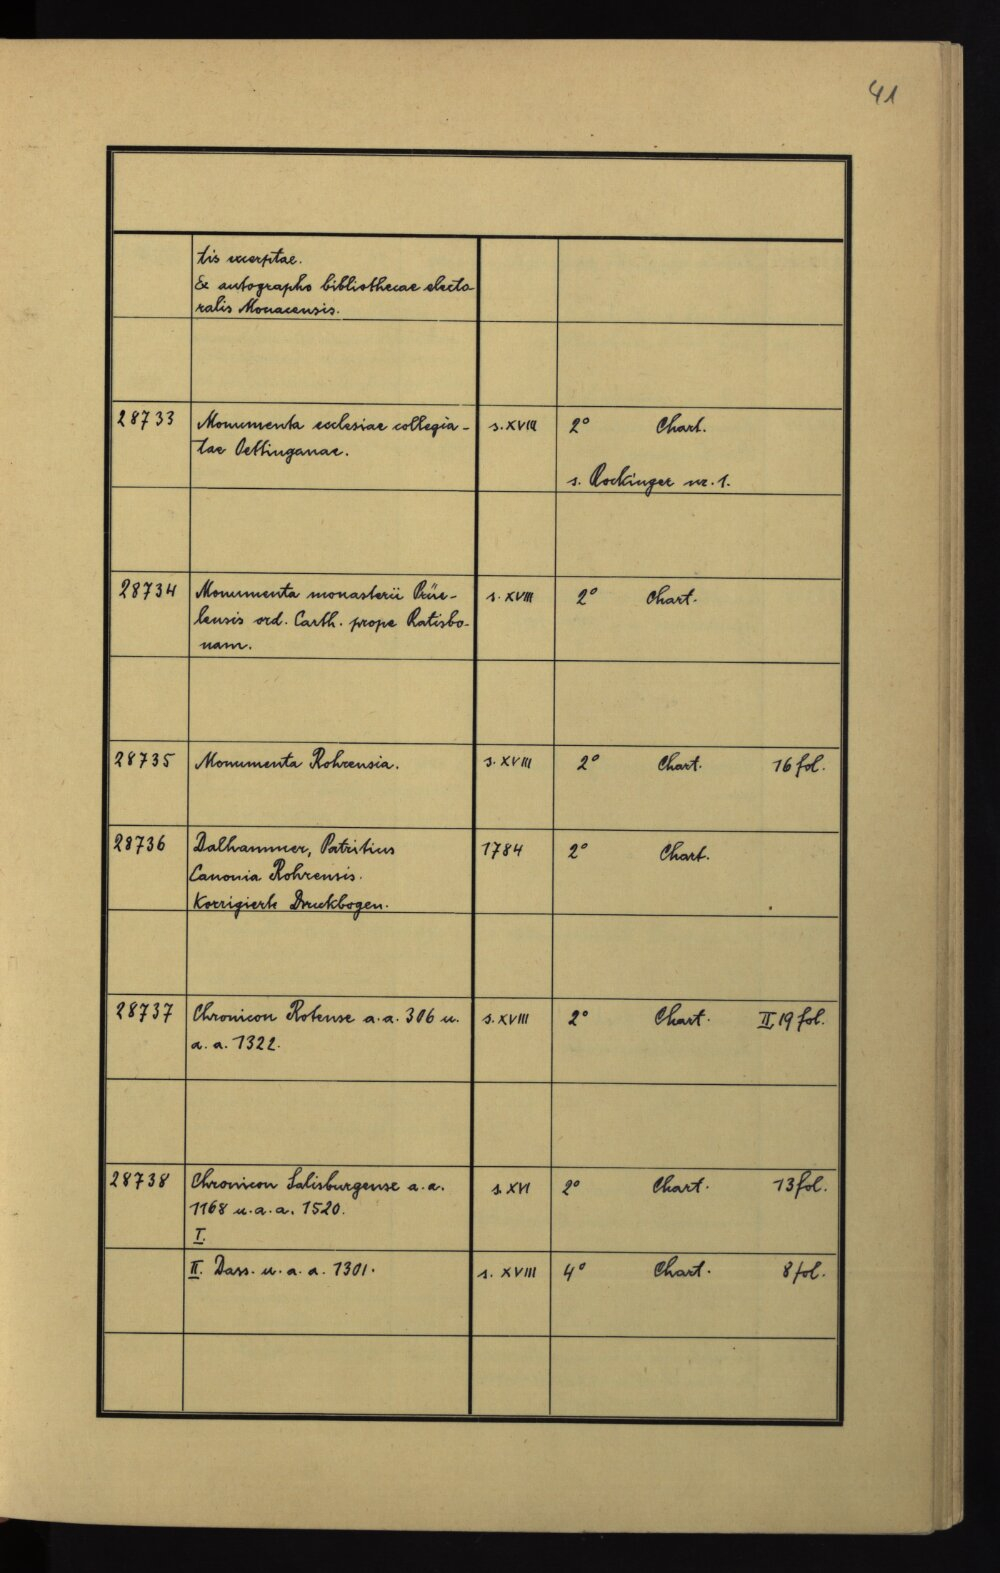 41
tis excerptae.
Ex autographo bibliothecae electo-
ralis Monacensis.
28733 Monumenta ecclesiae collegia- s. XVIII 2° Chart.
tae Oettinganae.
s. Rockinger nr. 1.
28734 Monumenta monasterii Prüe- s. XVIII 2° Chart.
lensis ord. Carth. prope Ratisbo-
nam.
28735 Monumenta Rohrensia. s. XVIII 2° Chart. 16 fol.
28736 Dalhammer, Patritius 1784 2° Chart.
Canonia Rohrensis.
Korrigierte Druckbogen.
28737 Chronicon Rotense a. a. 306 u. s. XVIII 2° Chart. II, 19 fol.
a. a. 1322.
28738 Chronicon Salisburgense a. a. s. XVI 2° Chart. 13 fol.
1168 u. a. a. 1520.
I.
II. Dass. u. a. a. 1301. s. XVIII 4° Chart. 8 fol.